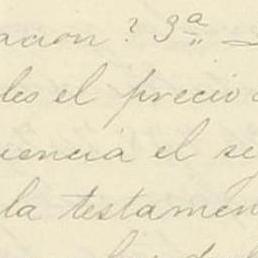 acion? 3ª
les el precio
iencia el se
la testamen